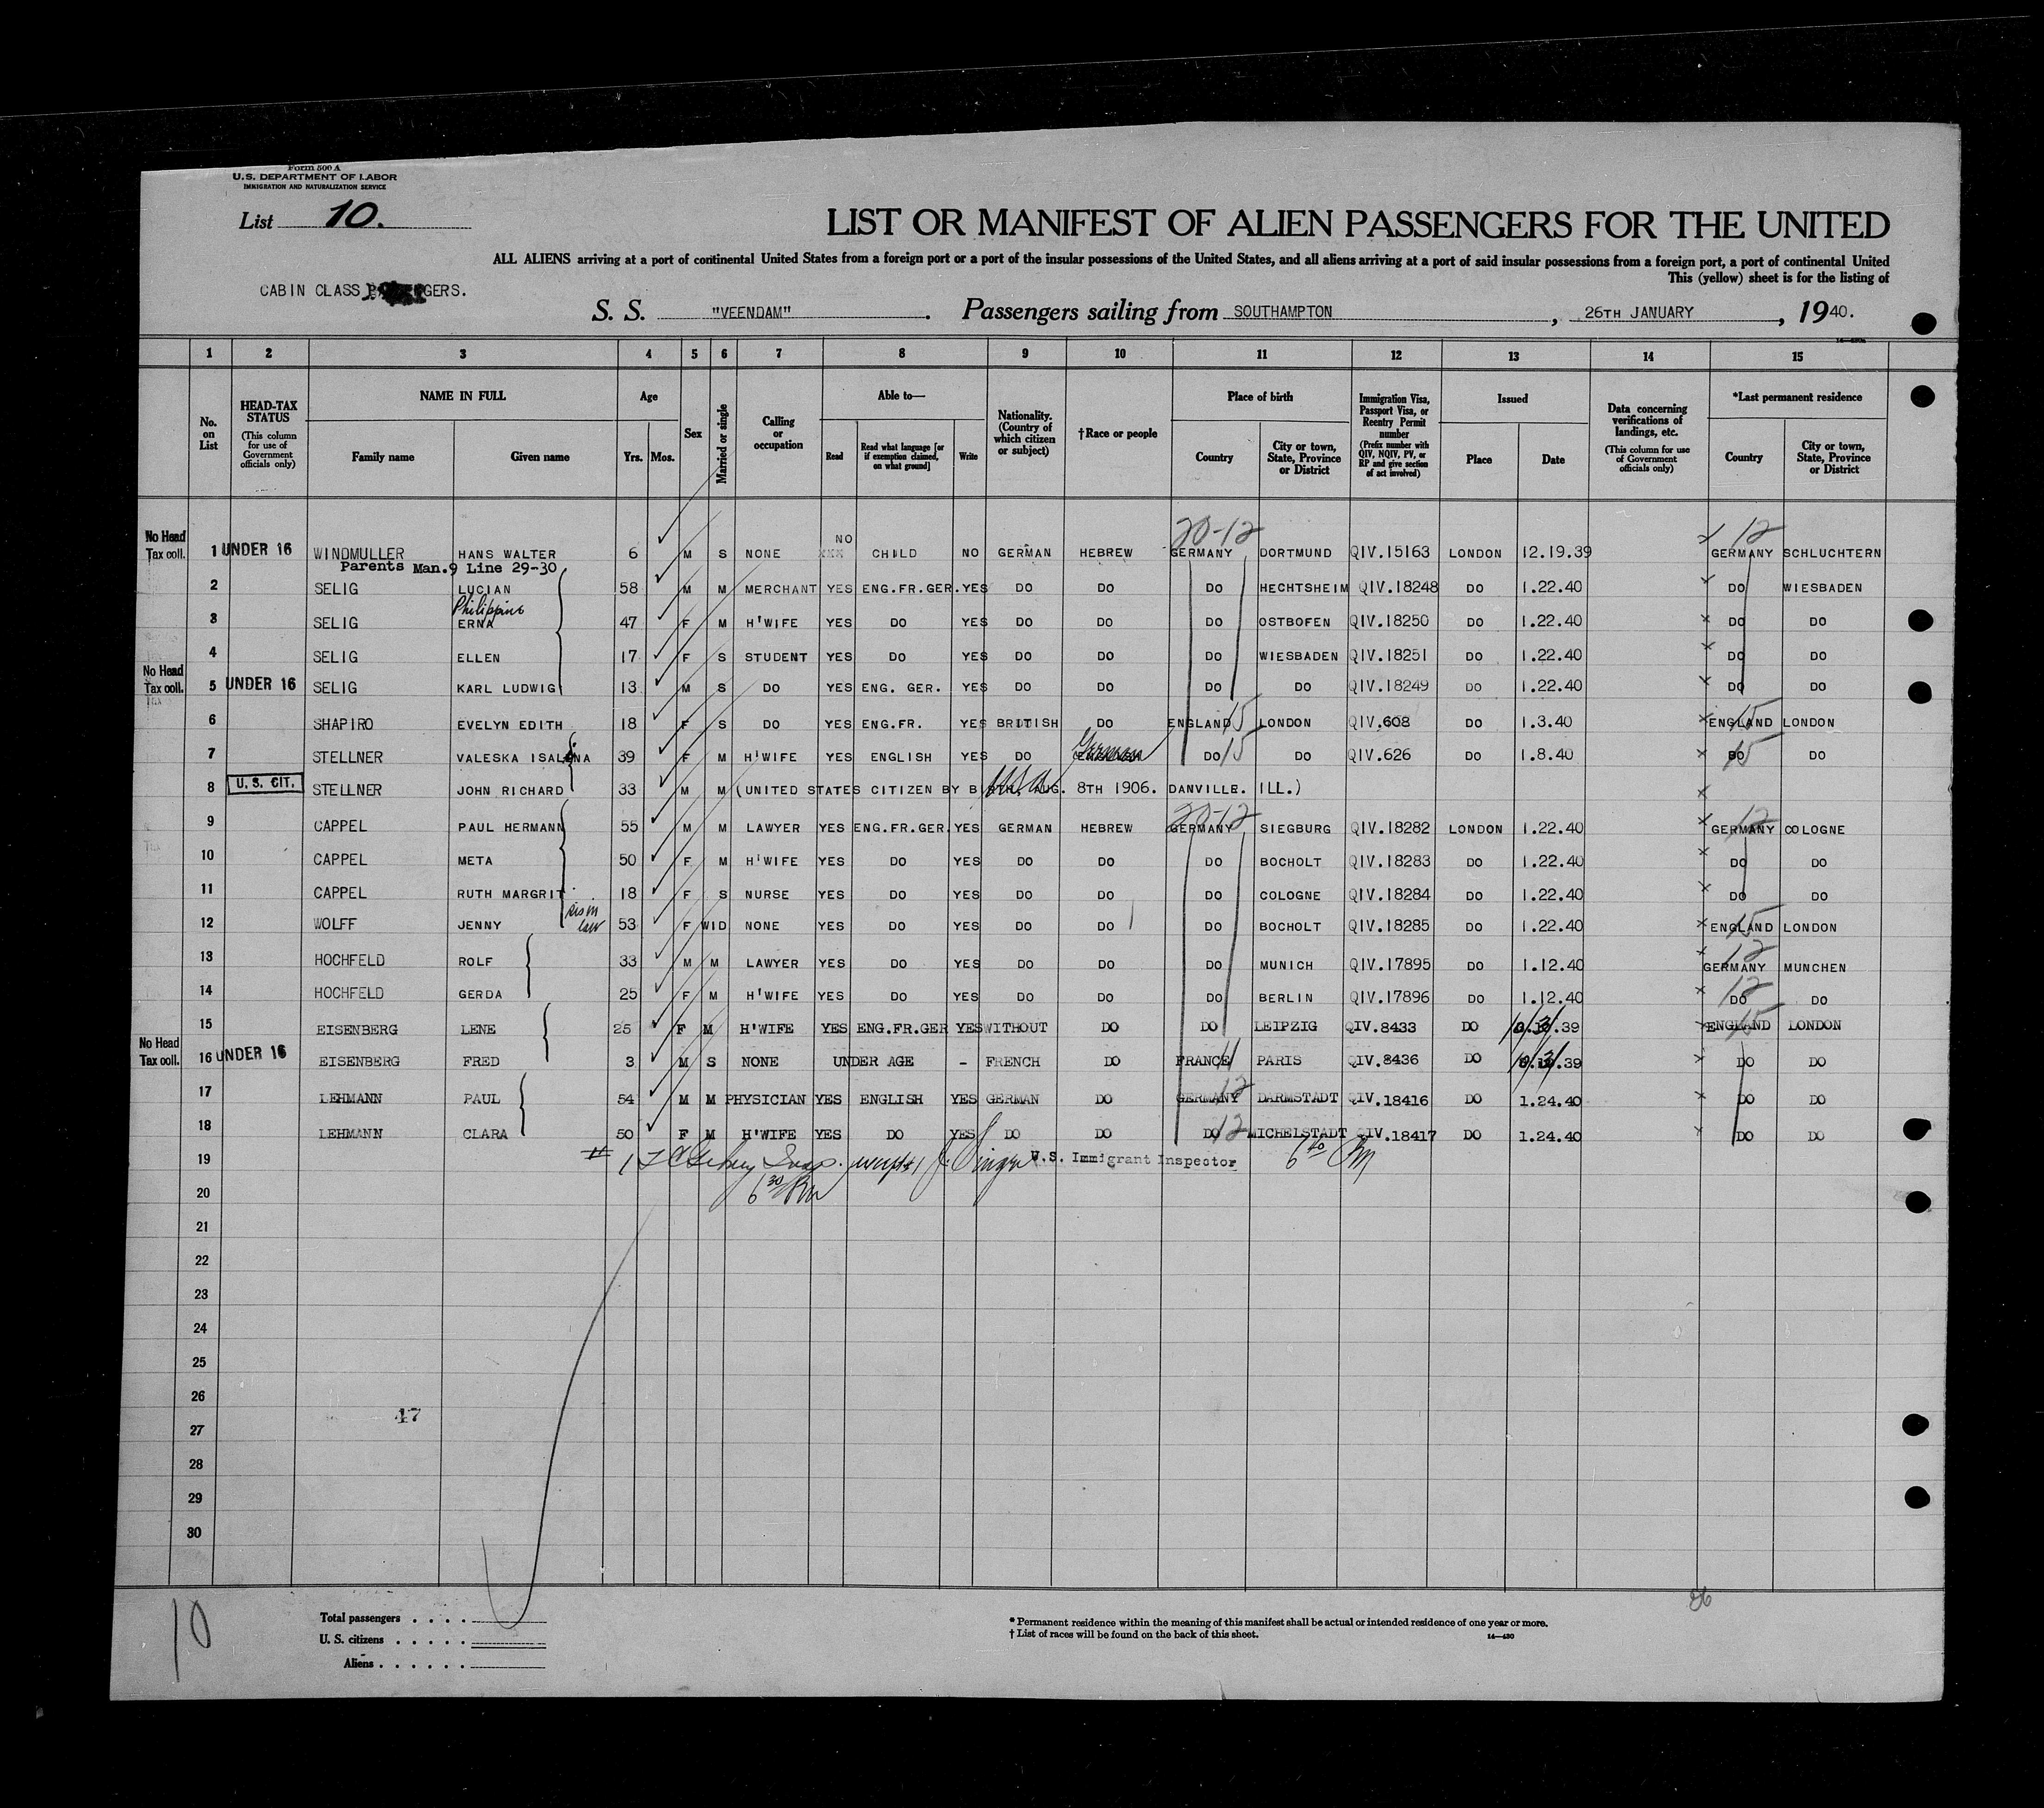 Form 500 A
U.S. DEPARTMENT OF LABOR
IMMIGRATION AND NATURALIZATION SERVICE
List 10.
LIST OR MANIFEST OF ALIEN PASSENGERS FOR THE UNITED
ALL ALIENS arriving at a port of continental United States from a foreign port or a port of the insular possessions of the United States, and all aliens arriving at a port of said insular possessions from a foreign port, a port of continental United
This (yellow) sheet is for the listing of
CABIN CLASS GERS.
S. S. "VEENDAM". Passengers sailing from SOUTHAMPTON, 26TH JANUARY, 1940.
1 2 3 4 5 6 7 8 9 10 11 12 13 14 15
No. on List
HEAD-TAX STATUS (This column for use of Government officials only)
NAME IN FULL Family name Given name
Age Yrs. Mos.
Sex
Married or single
Calling or occupation
Able to— Read Read what language [or if exemption claimed, on what ground] Write
Nationality. (Country of which citizen or subject)
†Race or people
Place of birth Country City or town, State, Province or District
Immigration Visa, Passport Visa, or Reentry Permit number (Prefix number with QIV, NQIV, PV, or RP and give section of act involved)
Issued Place Date
Data concerning verifications of landings, etc. (This column for use of Government officials only)
*Last permanent residence Country City or town, State, Province or District
20-12 12
No Head Tax coll. 1 UNDER 16 WINDMULLER HANS WALTER 6 M S NONE XXX NO CHILD NO GERMAN HEBREW GERMANY DORTMUND QIV.15163 LONDON 12.19.39 GERMANY SCHLUCHTERN
Parents Man.9 Line 29-30
2 SELIG LUCIAN 58 M M MERCHANT YES ENG.FR.GER. YES DO DO DO HECHTSHEIM QIV.18248 DO 1.22.40 DO WIESBADEN
Philippine
3 SELIG ERNA 47 F M H'WIFE YES DO YES DO DO DO OSTBOFEN QIV.18250 DO 1.22.40 DO DO
4 SELIG ELLEN 17 F S STUDENT YES DO YES DO DO DO WIESBADEN QIV.18251 DO 1.22.40 DO DO
No Head Tax coll. 5 UNDER 16 SELIG KARL LUDWIG 13 M S DO YES ENG. GER. YES DO DO DO DO QIV.18249 DO 1.22.40 DO DO
6 SHAPIRO EVELYN EDITH 18 F S DO YES ENG.FR. YES BRITISH DO ENGLAND 15 LONDON QIV.608 DO 1.3.40 ENGLAND 15 LONDON
7 STELLNER VALESKA ISALENA 39 F M H'WIFE YES ENGLISH YES DO German DO 15 DO QIV.626 DO 1.8.40 DO 15 DO
8 U. S. CIT. STELLNER JOHN RICHARD 33 M M (UNITED STATES CITIZEN BY USA AUG. 8TH 1906. DANVILLE. ILL.)
20-12 12
9 CAPPEL PAUL HERMANN 55 M M LAWYER YES ENG.FR.GER. YES GERMAN HEBREW GERMANY SIEGBURG QIV.18282 LONDON 1.22.40 GERMANY COLOGNE
10 CAPPEL META 50 F M H'WIFE YES DO YES DO DO DO BOCHOLT QIV.18283 DO 1.22.40 DO DO
11 CAPPEL RUTH MARGRIT 18 F S NURSE YES DO YES DO DO DO COLOGNE QIV.18284 DO 1.22.40 DO DO
12 WOLFF JENNY sis in law 53 F WID NONE YES DO YES DO DO DO BOCHOLT QIV.18285 DO 1.22.40 ENGLAND 15 LONDON
13 HOCHFELD ROLF 33 M M LAWYER YES DO YES DO DO DO MUNICH QIV.17895 DO 1.12.40 GERMANY 12 MUNCHEN
14 HOCHFELD GERDA 25 F M H'WIFE YES DO YES DO DO DO BERLIN QIV.17896 DO 1.12.40 DO 12 DO
15 EISENBERG LENE 25 F M H'WIFE YES ENG.FR.GER YES WITHOUT DO DO LEIPZIG QIV.8433 DO 10/3/.39 ENGLAND 15 LONDON
No Head Tax coll. 16 UNDER 16 EISENBERG FRED 3 M S NONE UNDER AGE - FRENCH DO FRANCE 11 PARIS QIV.8436 DO 10/3/.39 DO DO
17 LEHMANN PAUL 54 M M PHYSICIAN YES ENGLISH YES GERMAN DO GERMANY 12 DARMSTADT QIV.18416 DO 1.24.40 DO DO
18 LEHMANN CLARA 50 F M H'WIFE YES DO YES DO DO DO 12 MICHELSTADT QIV.18417 DO 1.24.40 DO DO
19 U.S. Immigrant Inspector 6 40 PM
20 6 30 PM
21
22
23
24
25
26
47
27
28
29
30
86
10
Total passengers
U. S. citizens
Aliens
* Permanent residence within the meaning of this manifest shall be actual or intended residence of one year or more.
† List of races will be found on the back of this sheet.
14—430